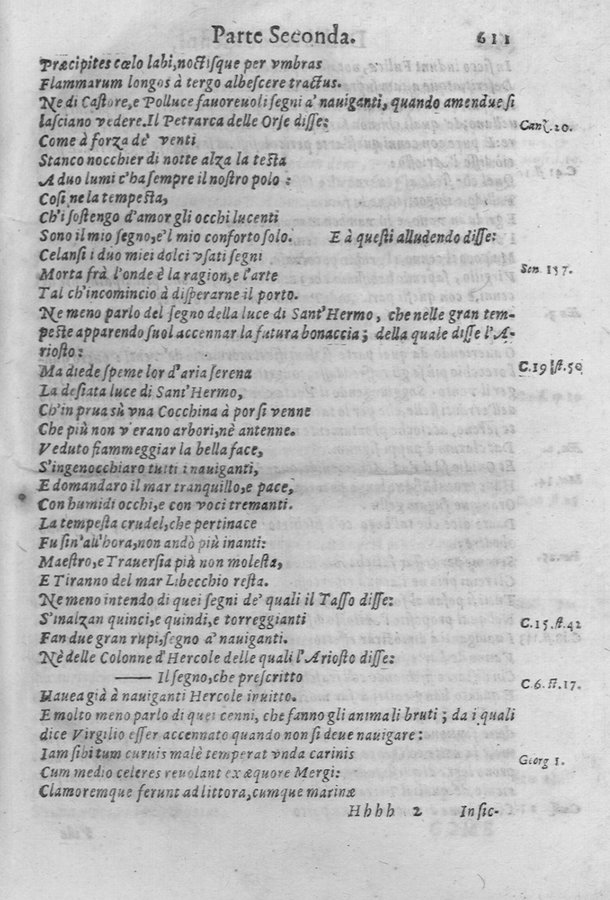 Parte Seconda. 611
Præcipites cœlo labi, noctisque per vmbras
Flammarum longos à tergo albescere tractus.
Ne di Castore, e Polluce fauoreuoli segni a' nauiganti, quando amendue si
lasciano vedere. Il Petrarca delle Orse disse: Canz. 10.
Come à forza de' venti
Stanco nocchier di notte alza la testa
A duo lumi c'ha sempre il nostro polo:
Così, ne la tempesta,
Ch'i sostengo d'amor gli occhi lucenti
Sono il mio segno, e'l mio conforto solo. E à questi alludendo disse:
Celansi i duo miei dolci vsati segni
Morta frà l'onde è la ragion, e l'arte Son. 157.
Tal ch'incomincio à disperarne il porto.
Ne meno parlo del segno della luce di Sant'Hermo, che nelle gran tem-
peste apparendo suol accennar la futura bonaccia; della quale disse l'A-
riosto:
Ma diede speme lor d'aria serena C. 19 st. 50
La desiata luce di Sant'Hermo,
Ch'in prua sù vna Cocchina à por si venne
Che più non v'erano arbori, nè antenne.
Veduto fiammeggiar la bella face,
S'ingenocchiaro tutti i nauiganti,
E domandaro il mar tranquillo, e pace,
Con humidi occhi, e con voci tremanti.
La tempesta crudel, che pertinace
Fu sin'all'hora, non andò più inanti:
Maestro, e Trauersia più non molesta,
E Tiranno del mar Libecchio resta.
Ne meno intendo di quei segni de' quali il Tasso disse:
S'inalzan quinci, e quindi, e torreggianti C. 15. st. 42
Fan due gran rupi, segno a' nauiganti.
Nè delle Colonne d'Hercole delle quali l'Ariosto disse:
—— Il segno, che prescritto
Hauea già à nauiganti Hercole inuitto. C. 6. st. 17.
E molto meno parlo di quei cenni, che fanno gli animali bruti; da i quali
dice Virgilio esser accennato quando non si deue nauigare:
Iam sibi tum curuis malè temperat vnda carinis Georg 1.
Cum medio celeres reuolant ex æquore Mergi:
Clamoremque ferunt ad littora, cumque marinæ
Hhhh 2 In sic-